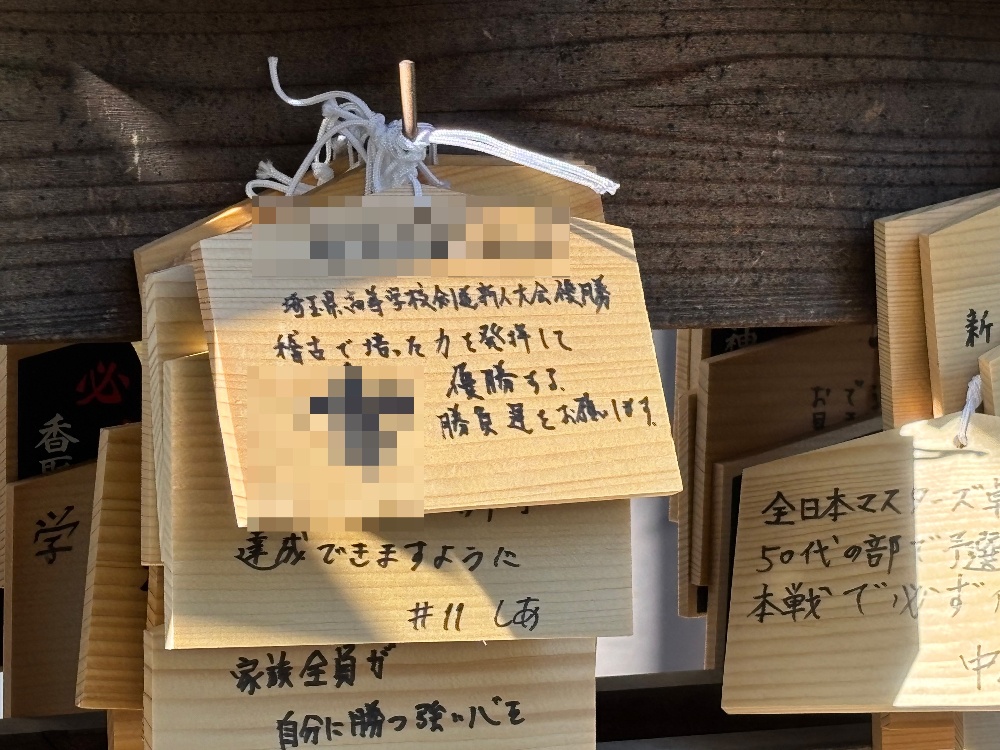 埼玉県高等学校剣道新人大会優勝
稽古で培った力を発揮して
優勝する
勝負運をお願いします。
達成できますように
#11 しあ
家族全員が
自分に勝つ強い心を
必
香
学
新
全日本マスターズ
50代の部で予選
本戦で必ず
中